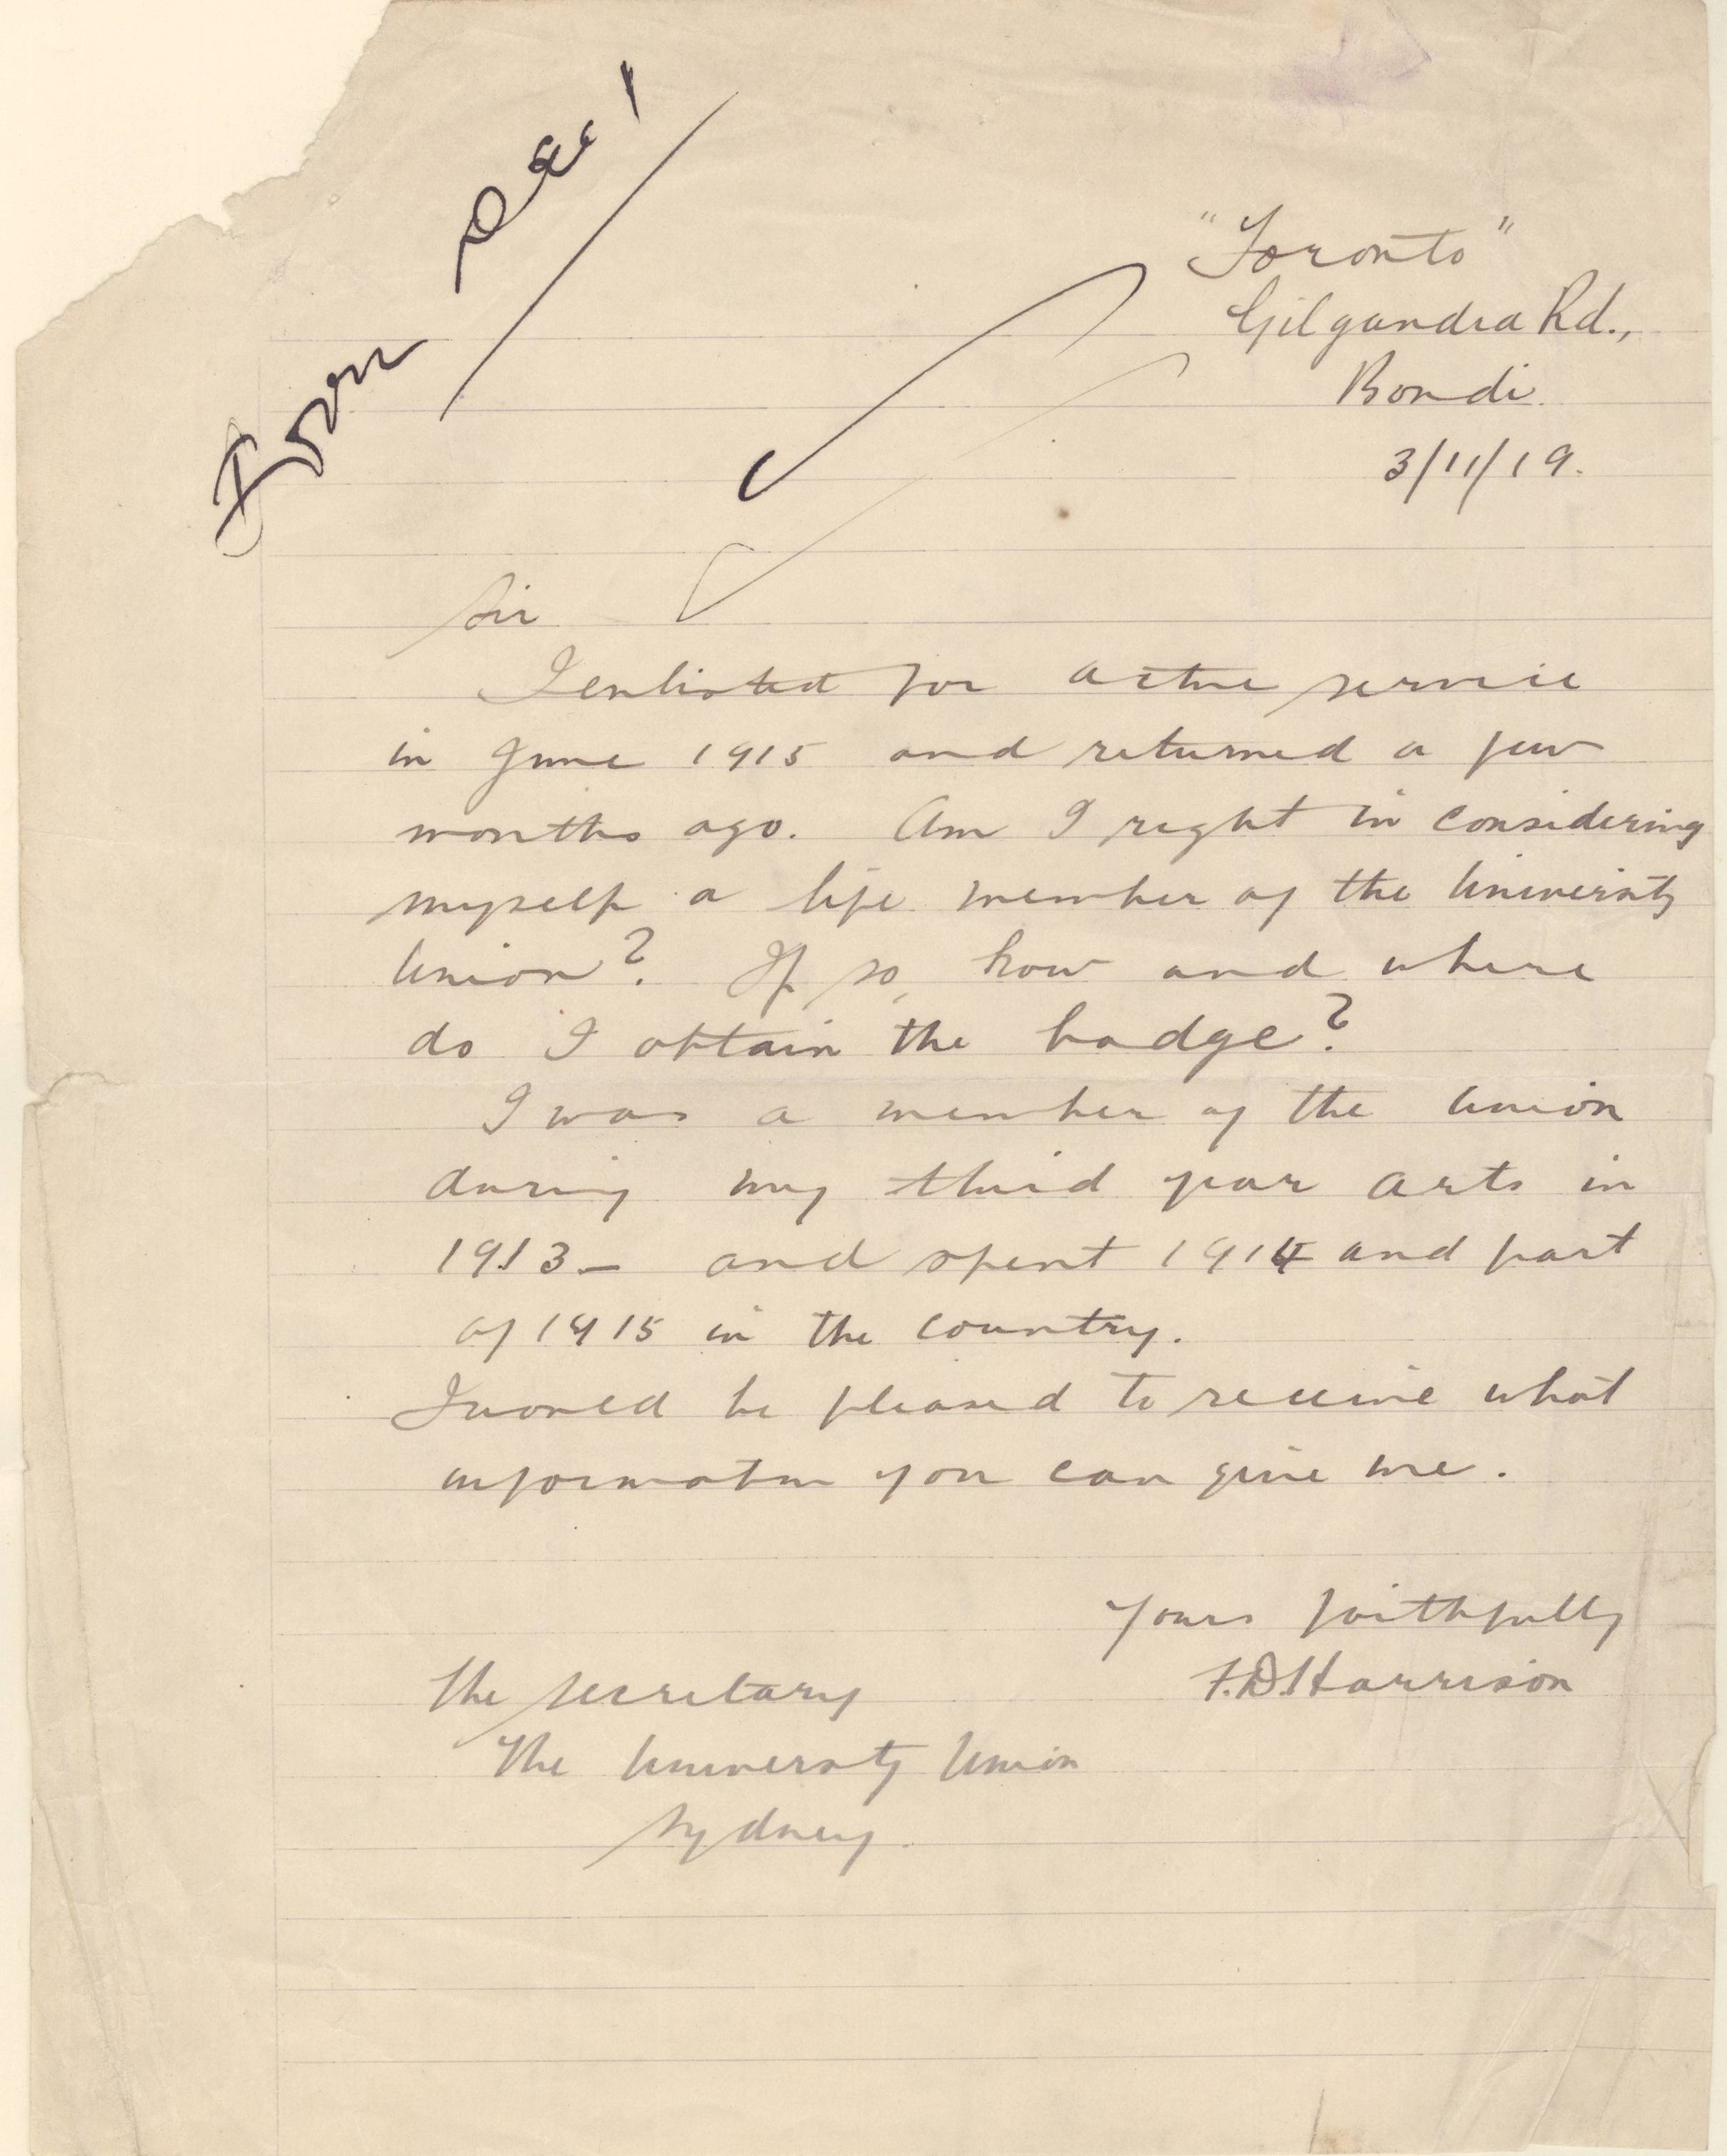 "Toronto"
Gilgandra Rd.,
Bondi.
3/11/19.
Sir
I enlisted for active service
in June 1915 and returned a few
months ago. Am I right in considering
myself a life member of the University
Union? If so, how and where
do I obtain the badge?
I was a member of the Union
during my third year Arts in
1913 - and spent 1914 and part
of 1915 in the country.
I would be pleased to receive what
information you can give me.
Yours faithfully
F.D. Harrison
The Secretary
The University Union
Sydney.